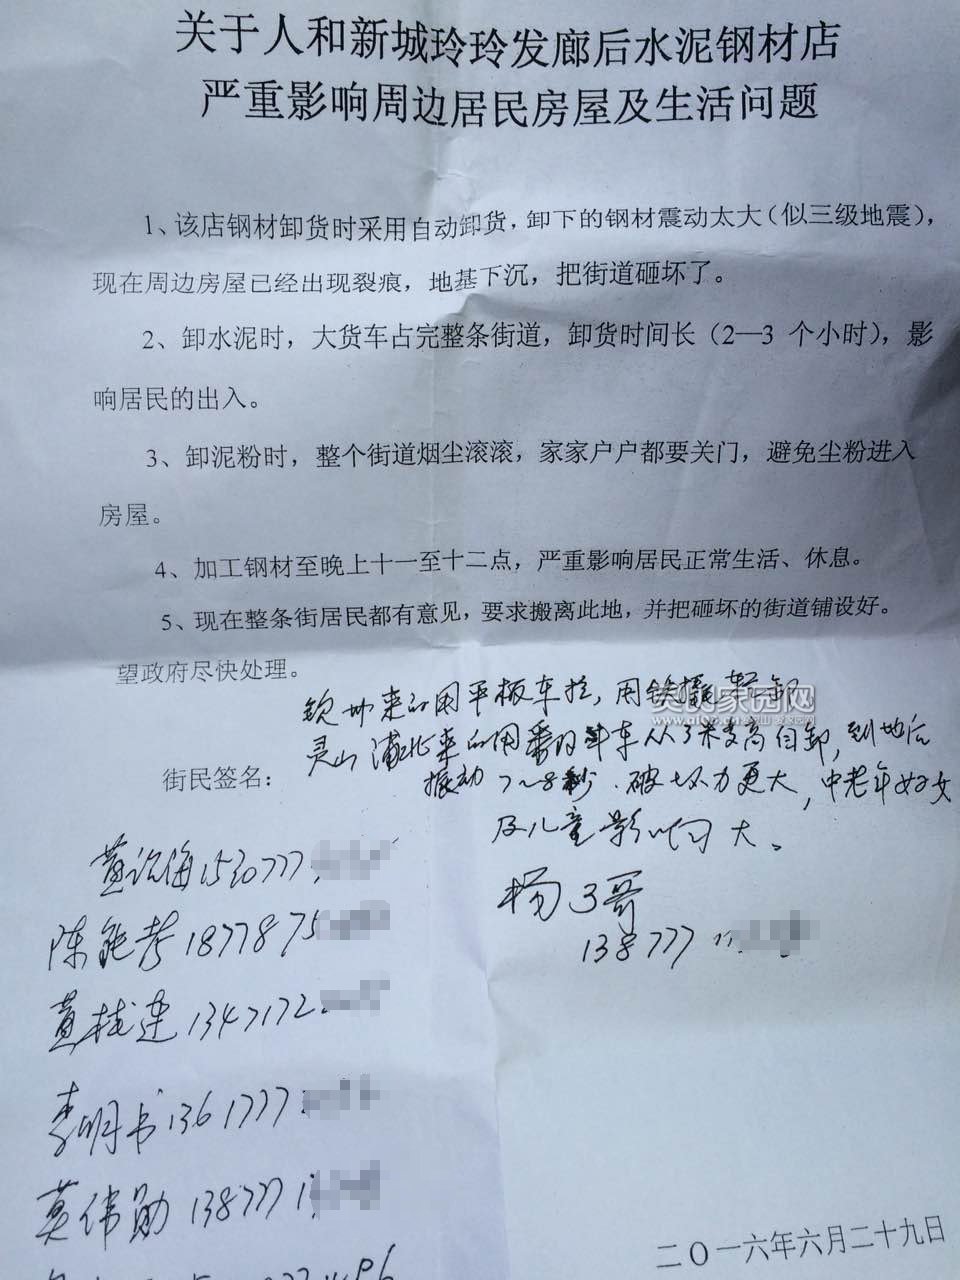 关于人和新城玲玲发廊后水泥钢材店
严重影响周边居民房屋及生活问题
1、该店钢材卸货时采用自动卸货，卸下的钢材震动太大（似三级地震），
现在周边房屋已经出现裂痕，地基下沉，把街道砸坏了。
2、卸水泥时，大货车占完整条街道，卸货时间长（2—3 个小时），影
响居民的出入。
3、卸泥粉时，整个街道烟尘滚滚，家家户户都要关门，避免尘粉进入
房屋。
4、加工钢材至晚上十一至十二点，严重影响居民正常生活、休息。
5、现在整条街居民都有意见，要求搬离此地，并把砸坏的街道铺设好。
望政府尽快处理。
钦州来的用平板车拉，用铁 卸
灵山浦北来的用 车从3米 高自卸，到地后
街民签名：
振动7~8秒．破坏力更大，中老年妇女
及儿童影响大。
黄 海 1530777
陈 1877875
杨3哥
138777
黄桂建 1347172
李明书 1361777
莫伟勋 1387771
二〇一六年六月二十九日